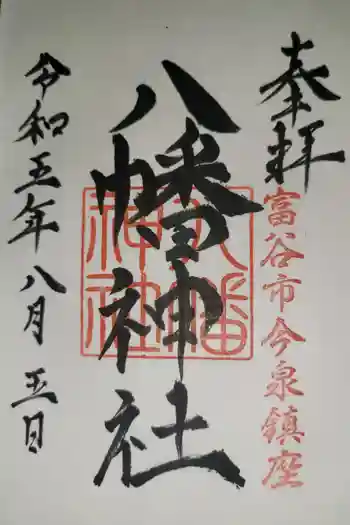 奉拝
富谷市今泉鎮座
八幡神社
八幡
神社
令和五年八月五日